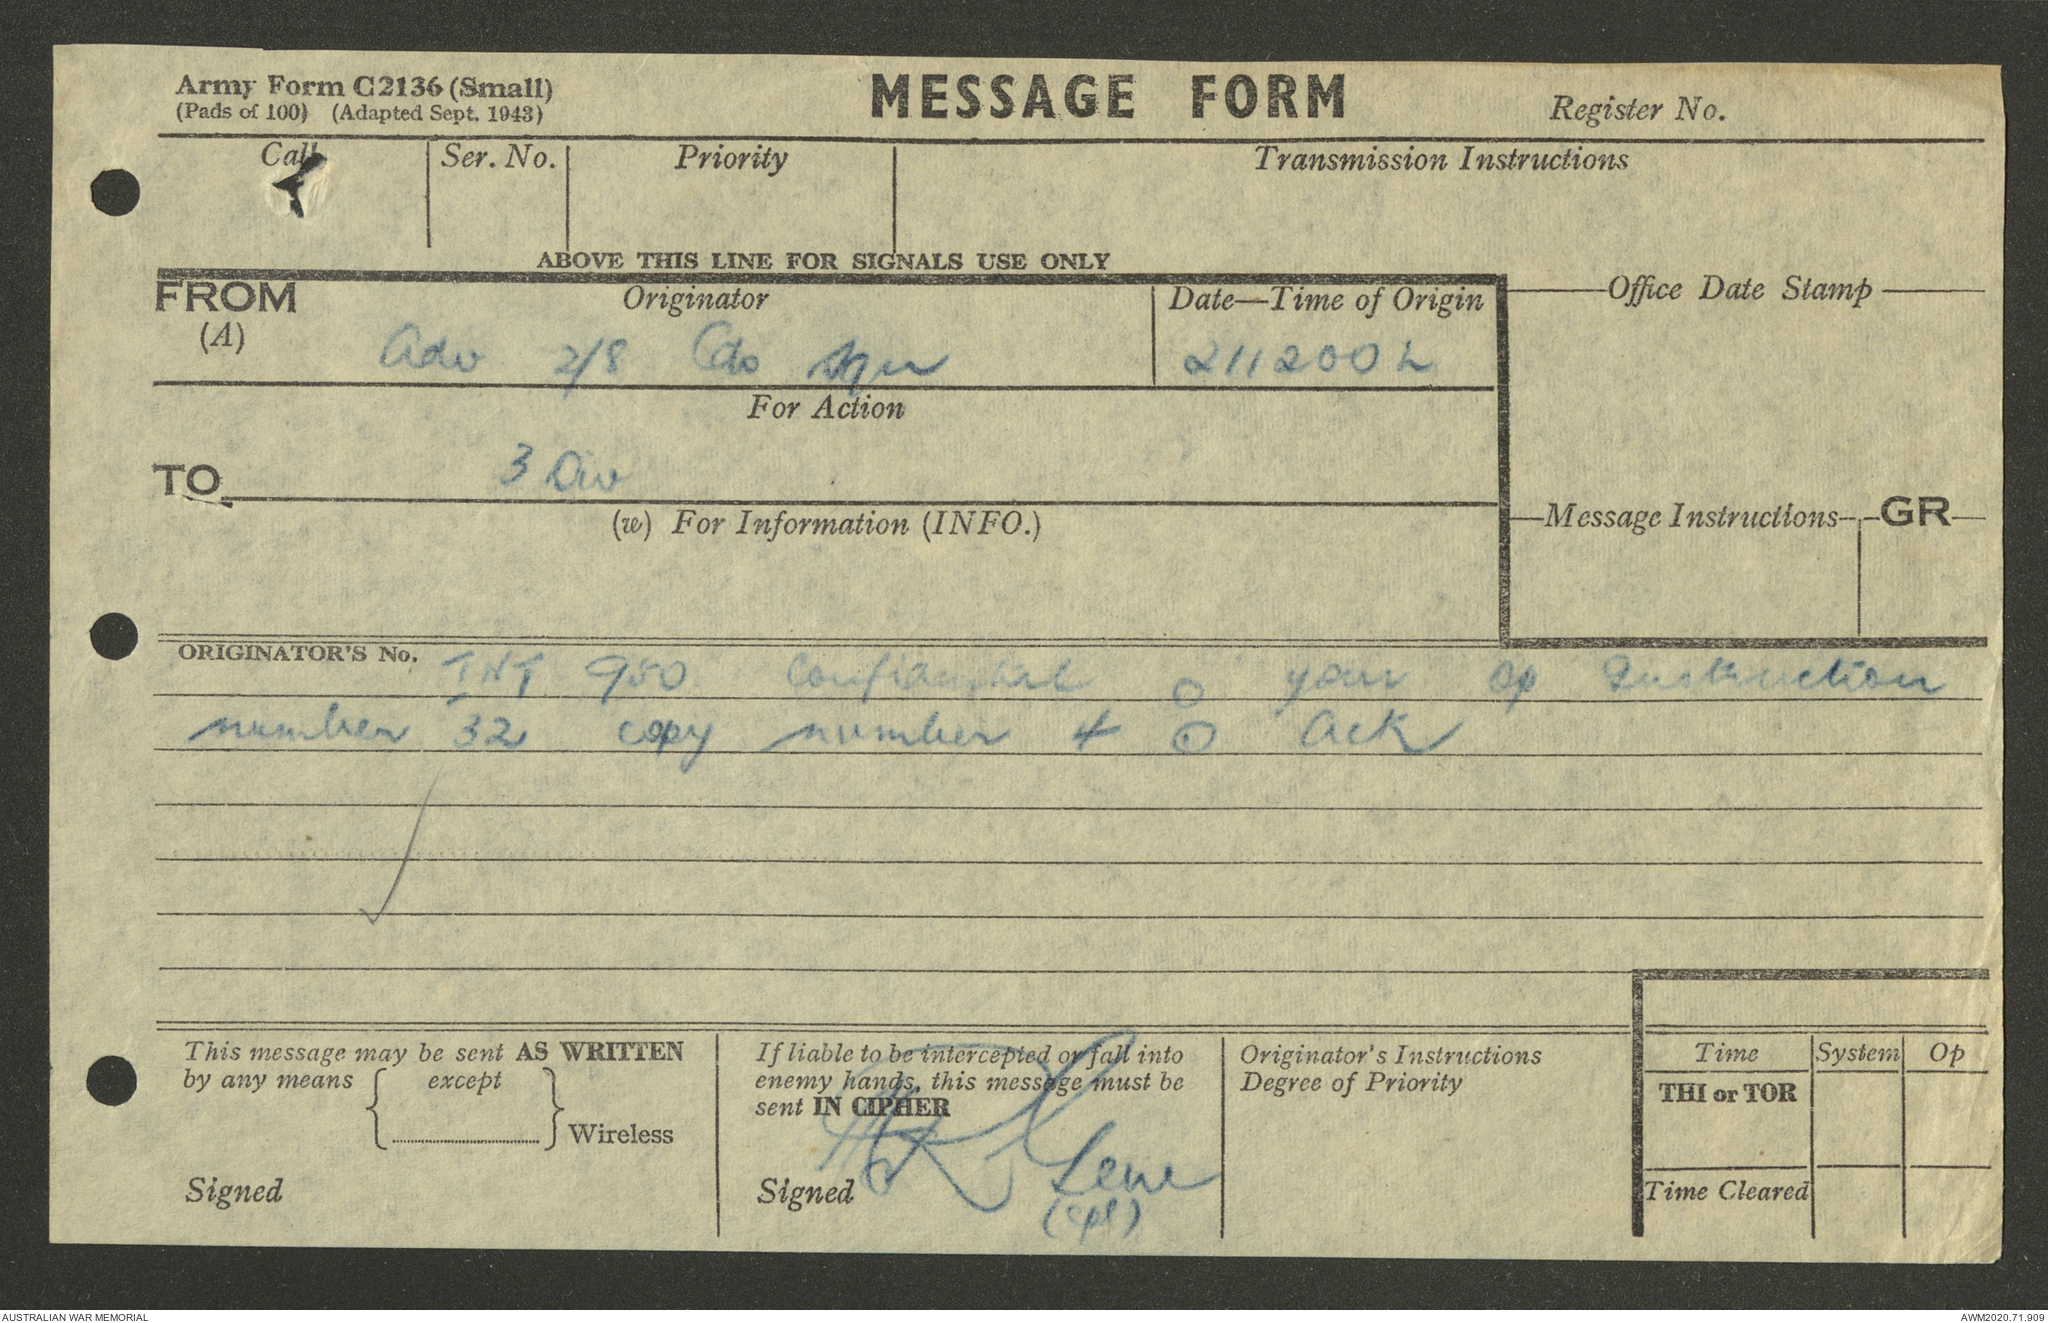 Army Form C2136 (Small)
(Pads of 100) (Adapted Sept. 1943)
MESSAGE FORM
Register No.
Call Ser. No. Priority Transmission Instructions
ABOVE THIS LINE FOR SIGNALS USE ONLY
FROM Originator Date—Time of Origin
Office Date Stamp
(A) Adv 2/8 Cdo Sqn 211200 L
For Action
TO 3 Div
(w) For Information (INFO.)
Message Instructions GR
ORIGINATOR'S No. INT 950 Confidential o your Op Instruction
number 32 copy number 4 o Ack
This message may be sent AS WRITTEN
by any means { except }
Wireless
Signed
If liable to be intercepted or fall into
enemy hands, this message must be
sent IN CIPHER
Signed
(Cpl)
Originator's Instructions
Degree of Priority
Time System Op
THI or TOR
Time Cleared
AUSTRALIAN WAR MEMORIAL
AWM2020.71.909